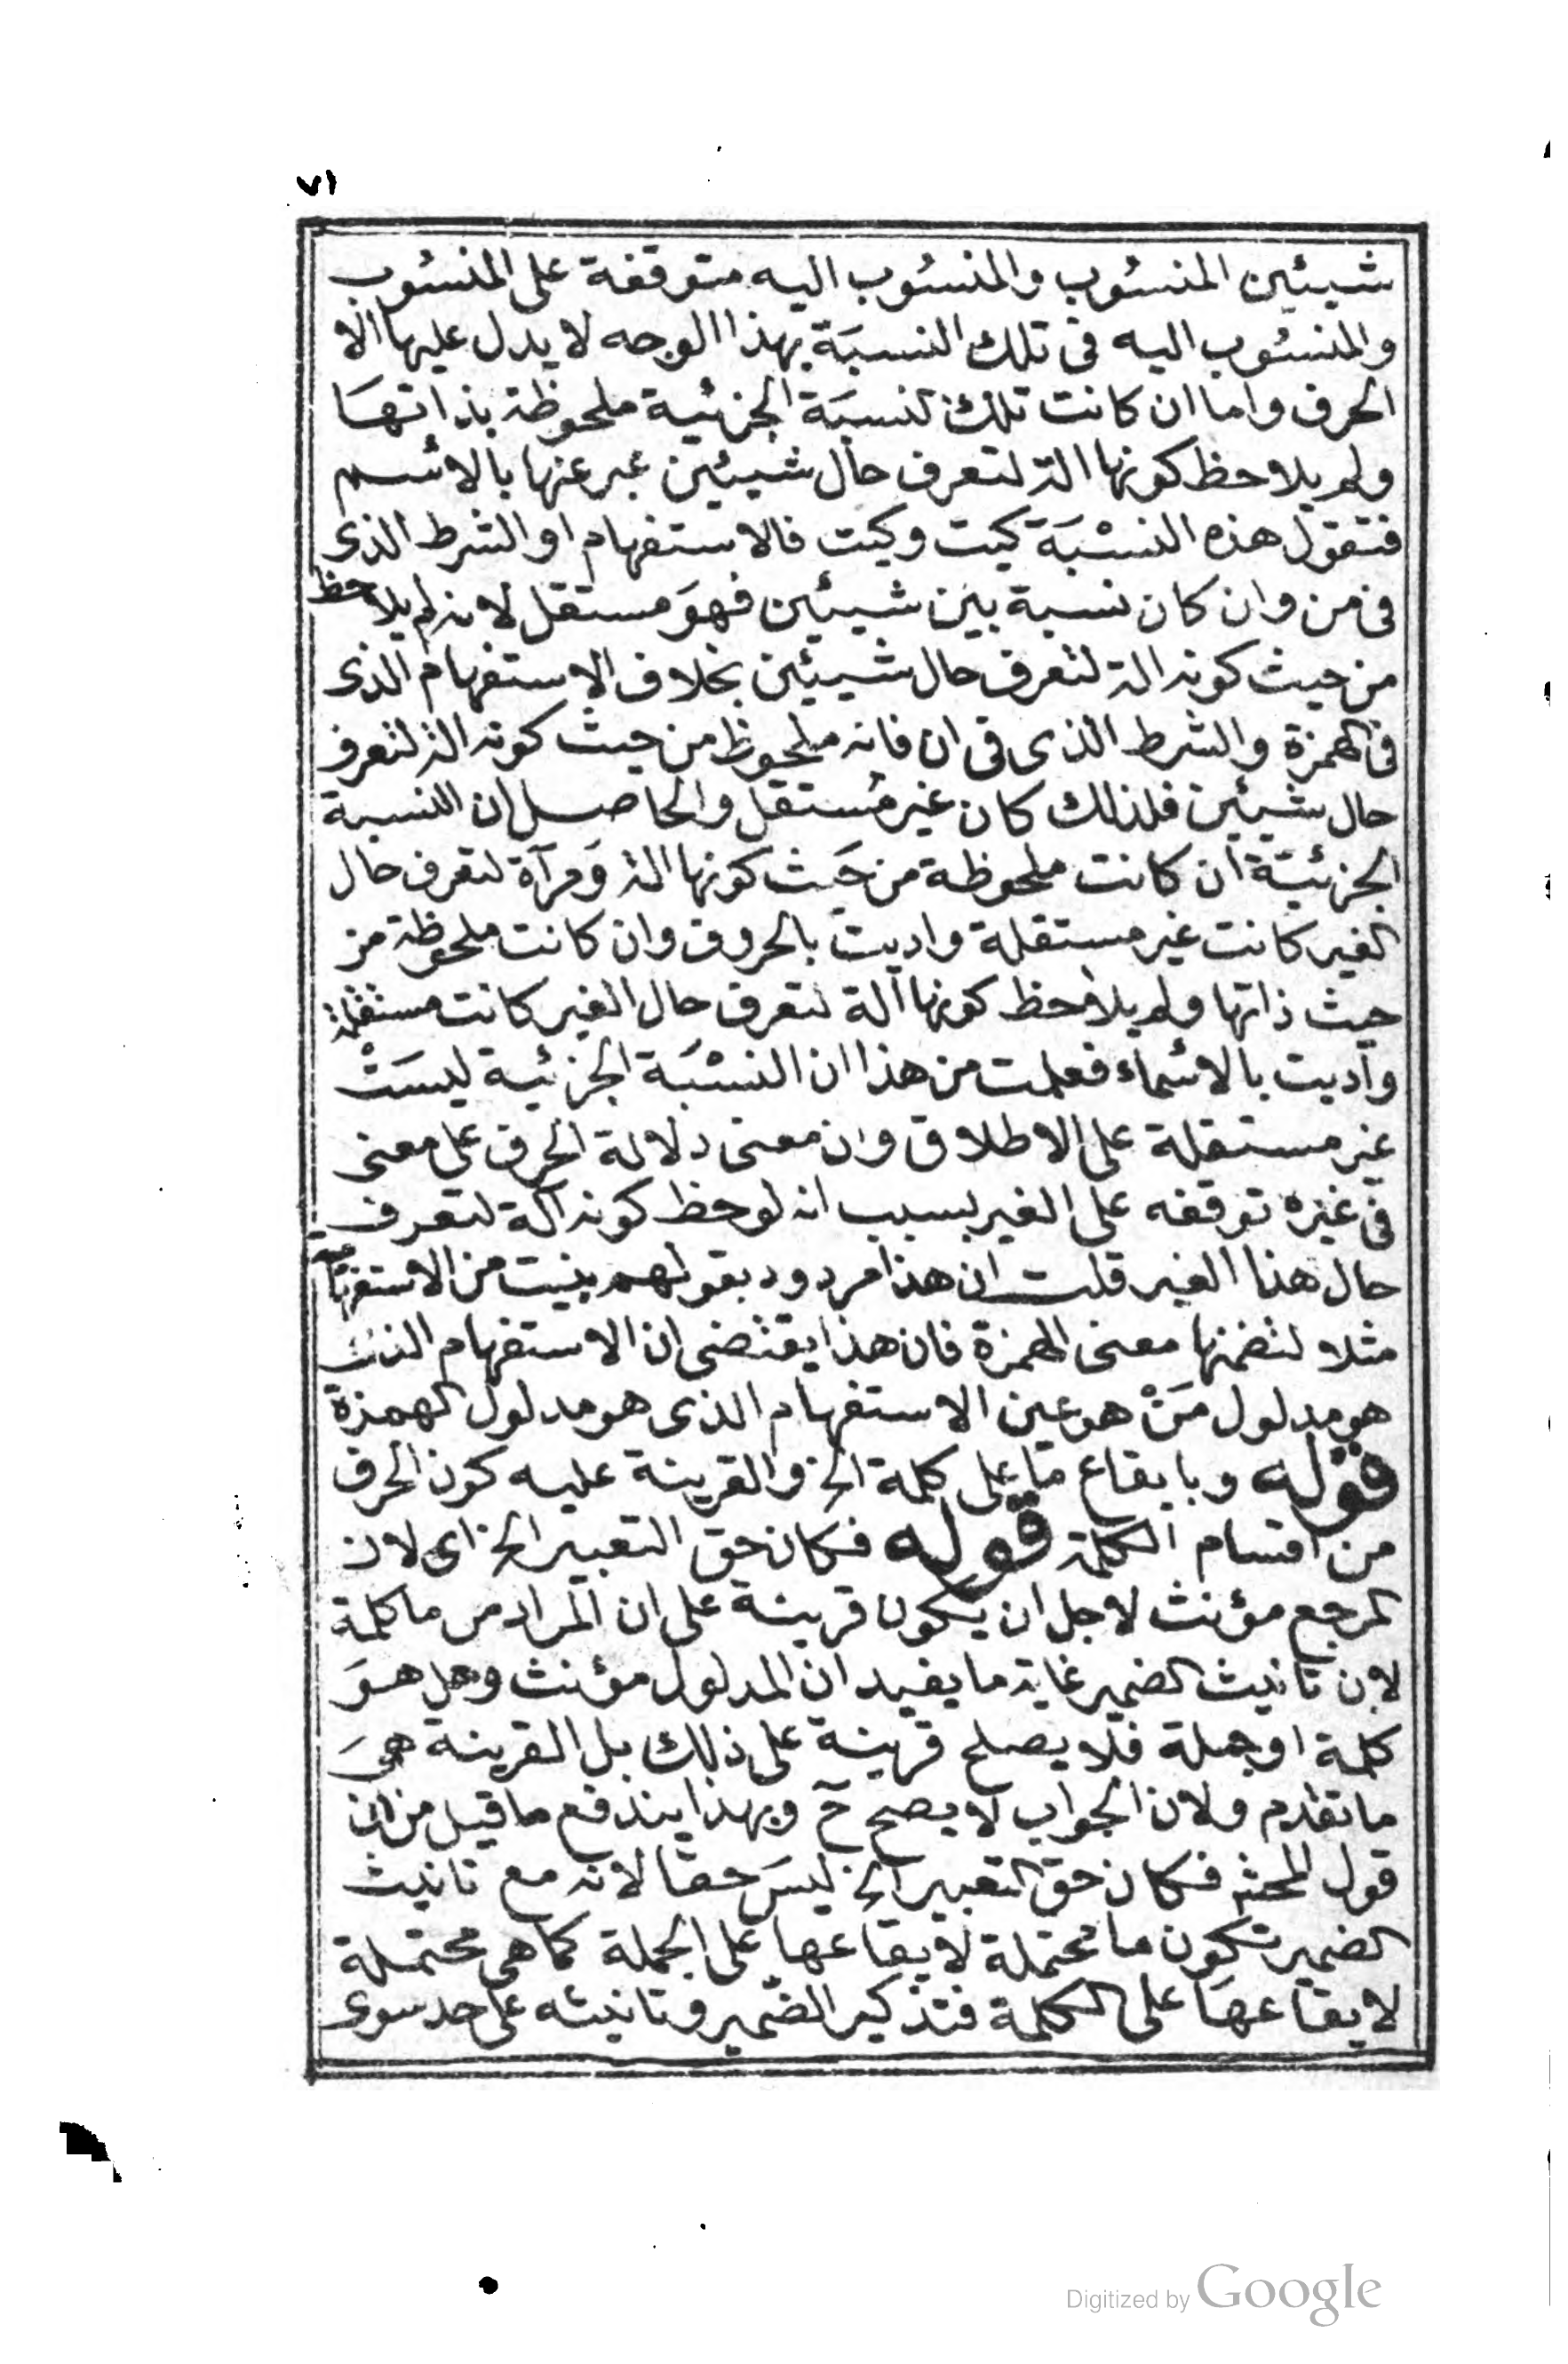 ٧١
شيئين المنسوب والمنسوب اليه متوقفة على المنسوب
والمنسوب اليه فى تلك النسبة بهذا الوجه لا يدل عليها الا
الحرف واما ان كانت تلك النسبة الجزئية ملحوظة بذاتها
ولم يلاحظ كونها الة لتعرف حال شيئين عبر عنها بالاسم
فتقول هذه النسبة كيت وكيت فالاستفهام او الشرط الذى
فى من وان كان نسبة بين شيئين فهو مستقل لانه لم يلاحظ
من حيث كونه الة لتعرف حال شيئين بخلاف الاستفهام الذى
فى الهمزة والشرط الذى فى ان فانه ملحوظ من حيث كونه الة لتعرف
حال شيئين فلذلك كان غير مستقل والحاصل ان النسبة
الجزئية ان كانت ملحوظة من حيث كونها الة ومرآة لتعرف حال
الغير كانت غير مستقلة واديت بالحروف وان كانت ملحوظة من
حيث ذاتها ولم يلاحظ كونها آلة لتعرف حال الغير كانت مستقلة
وأديت بالاسماء فعلمت من هذا ان النسبة الجزئية ليست
غير مستقلة على الاطلاق وان معنى دلالة الحرف على معنى
فى غيره توقفه على الغير بسبب انه لوحظ كونه آلة لتعرف
حال هذا الغير قلت ان هذا مردود بقولهم بنيت من الاستفهامية
مثلا لتضمنها معنى الهمزة فان هذا يقتضى ان الاستفهام الذى
هو مدلول مَنْ هو عين الاستفهام الذى هو مدلول الهمزة
قوله وبايقاع ما على كلمة الخ والقرينة عليه كون الحرف
من اقسام الكلمة قوله فكان حق التعبير الخ اى لان
المرجع مؤنث لاجل ان يكون قرينة على ان المراد من ما كلمة
لان تانيث الضمير غاية ما يفيد ان المدلول مؤنث وهل هو
كلمة او جملة فلا يصلح قرينة على ذلك بل القرينة هى
ما تقدم ولان الجواب لا يصح ح وبهذا يندفع ما قيل من ان
قول المحشى فكان حق التعبير الخ ليس حقا لانه مع تانيث
الضمير تكون ما محتملة لايقاعها على الجملة كما هى محتملة
لايقاعها على الكلمة فتذكير الضمير وتانيثه على حد سوى
Digitized by Google